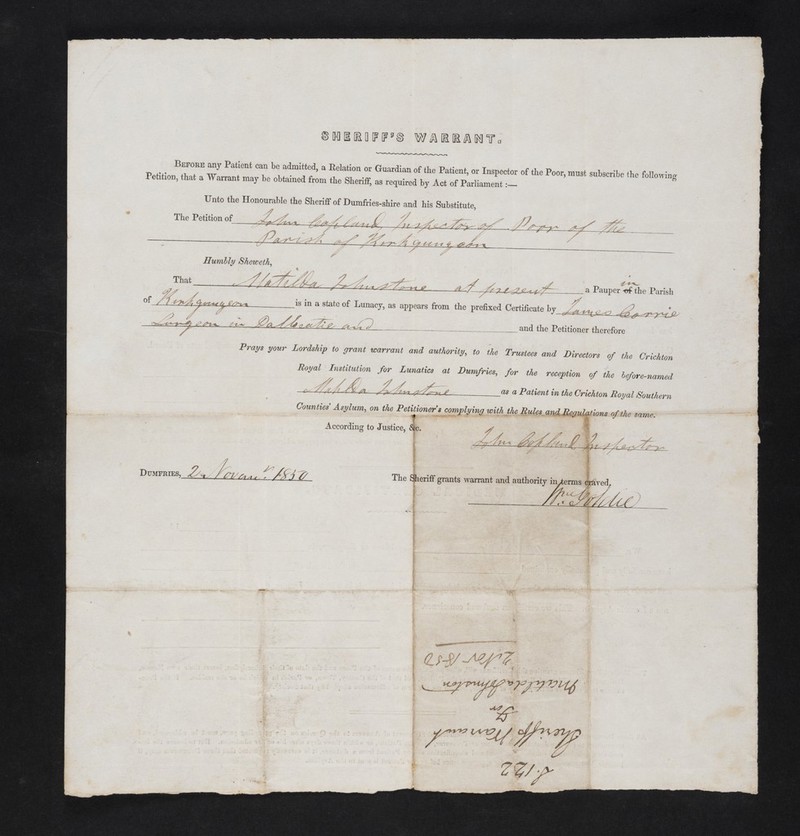 SHERIFF'S WARRANT.
BEFORE any Patient can be admitted, a Relation or Guardian of the Patient, or Inspector of the Poor, must subscribe the following
Petition, that a Warrant may be obtained from the Sheriff, as required by Act of Parliament :—
Unto the Honourable the Sheriff of Dumfries-shire and his Substitute,
The Petition of John Copland Inspector of Poor of the
Parish of Kirkgunzeon
Humbly Sheweth,
That Matilda Johnstone at present a Pauper of in the Parish
of Kirkgunzeon is in a state of Lunacy, as appears from the prefixed Certificate by James Corrie
Surgeon in Dalbeatie and and the Petitioner therefore
Prays your Lordship to grant warrant and authority, to the Trustees and Directors of the Crichton
Royal Institution for Lunatics at Dumfries, for the reception of the before-named
Matilda Johnstone as a Patient in the Crichton Royal Southern
Counties' Asylum, on the Petitioner's complying with the Rules and Regulations of the same.
According to Justice, &c.
John Copland Inspector
DUMFRIES, 2 1850
The Sheriff grants warrant and authority in terms craved,
Wm Goldie
Sheriffs Warrant
For
Matilda Johnston
2 Nov 1850